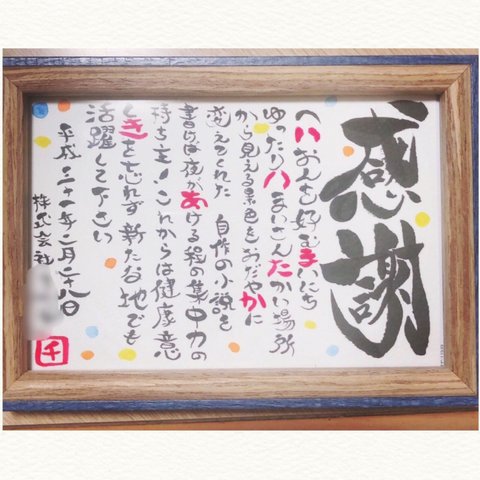 感謝
へいおんを好むまいにち
ゆったりいまいさんたかい場所
から見える景色をおだやかに
変えてくれた 自作の小説を
書けば夜があける程の集中力の
持ち主！これからは健康意
しきを忘れず新たな地でも
活躍して下さい
平成三十一年二月二十八日
株式会社
千